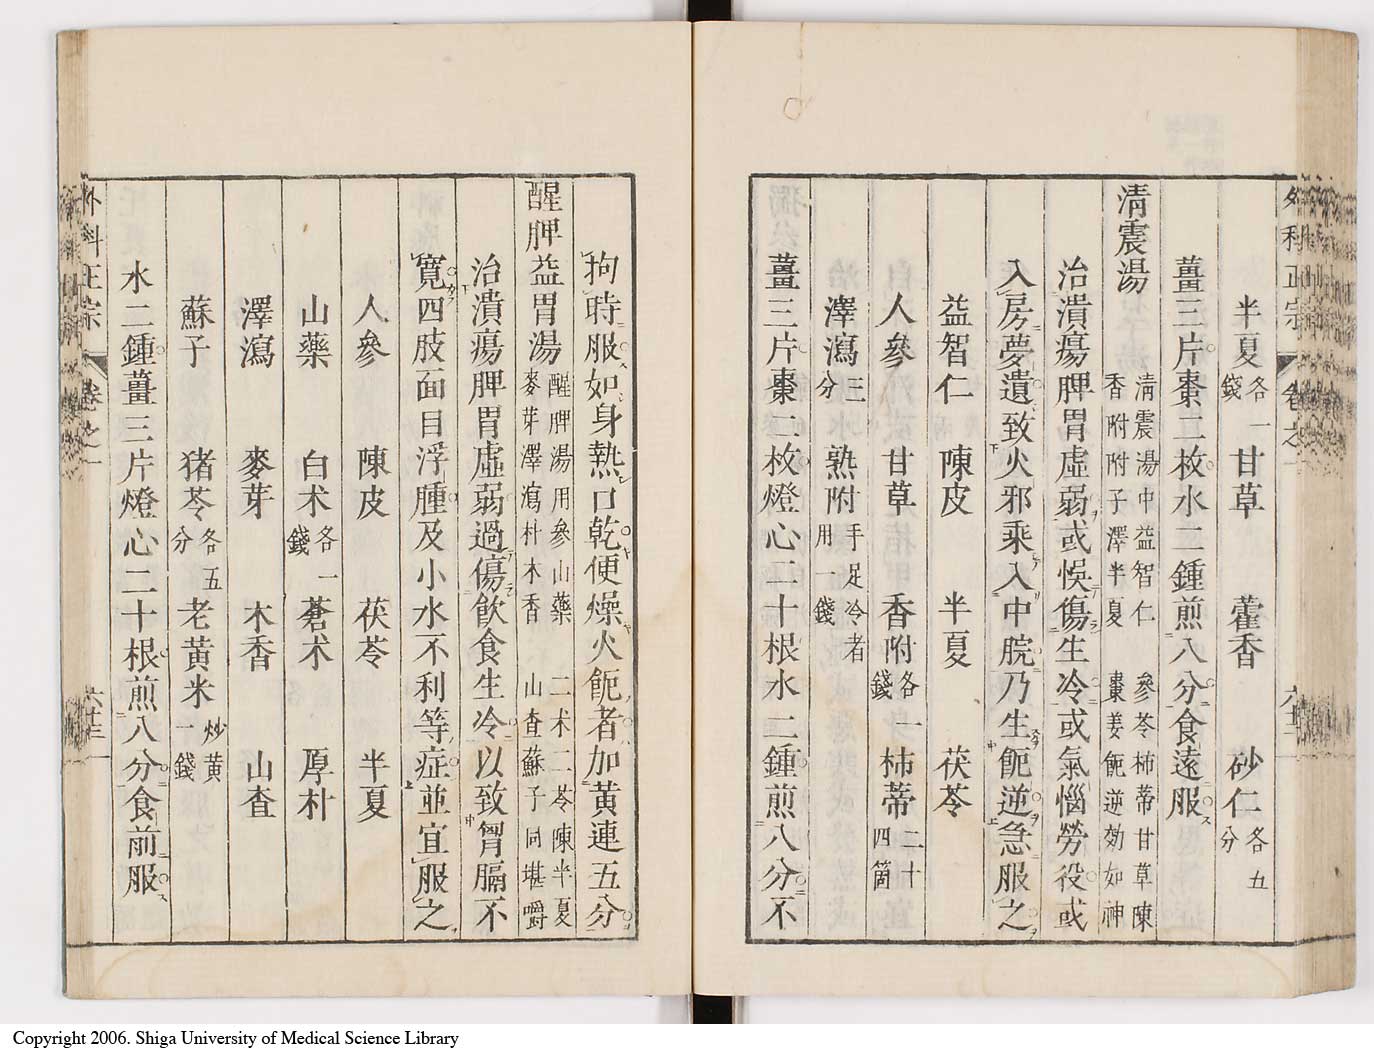 外科正宗 卷之一 六十二
半夏各一錢 甘草 藿香 砂仁各五分
薑三片棗二枚水二鍾煎八分食遠服
淸震湯 淸震湯中益智仁 參苓柿蒂甘草陳
香附附子澤半夏 棗姜䭇逆効如神
治潰瘍脾胃虛弱或悞傷生冷或氣惱勞役或
入房夢遺致火邪乘入中脘乃生䭇逆急服之
益智仁 陳皮 半夏 茯苓
人參 甘草 香附各一錢 柿蒂二十四箇
澤瀉三分 熟附手足冷者用一錢
薑三片棗二枚燈心二十根水二鍾煎八分不
拘時服如身熱口乾便燥火䭇者加黄連五分
醒脾益胃湯 醒脾湯用參山藥 二术二苓陳半夏
麥芽澤瀉朴木香 山査蘇子同堪嚼
治潰瘍脾胃虛弱過傷飮食生冷以致胷膈不
寬四肢面目浮腫及小水不利等症並宜服之
人參 陳皮 茯苓 半夏
山藥 白术各一錢 蒼术 厚朴
澤瀉 麥芽 木香 山査
蘇子 猪苓各五分 老黄米炒黄一錢
水二鍾薑三片燈心二十根煎八分食前服
外科正宗 卷之一 六十三
Copyright 2006. Shiga University of Medical Science Library